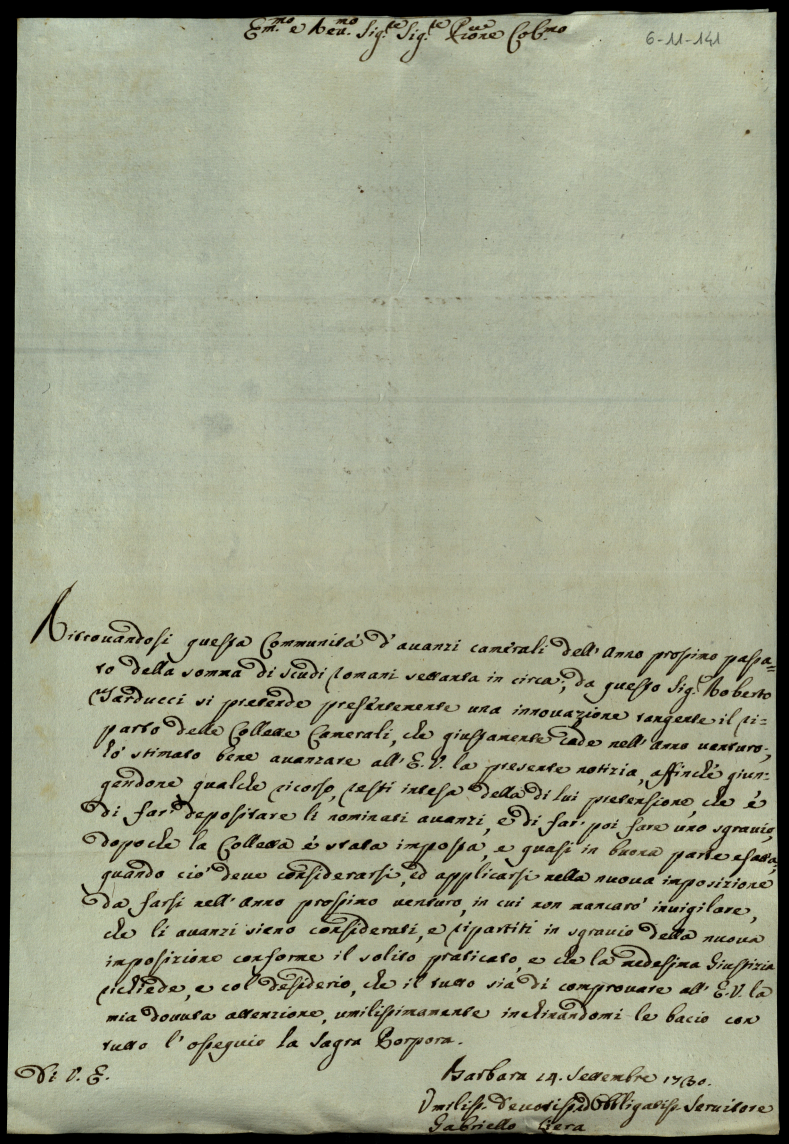 Em.mo e Reu.mo Sig.re Sig.re Prone Col.mo
6-11-141
Ritrouandosi questa Communità d'auanzi camerali dell'Anno prossimo passa=
to della somma di scudi romani settanta in circa; da questo Sig. Roberto
Tarducci si pretende presentemente una innouazione tangente il ri=
parto delle Collette Camerali, che giustamente cade nell'Anno uenturo;
hò stimato bene auanzare all'E.V. la presente notizia, affinchè giun-
gendone qualche ricorso, resti intesa della di lui pretensione, che è
di far depositare li nominati auanzi, e di far poi fare uno sgrauio,
dopoche la Colletta è stata imposta, e quasi in buona parte esatta;
quando ciò deue considerarsi, ed applicarsi nella nuoua imposizione
da farsi nell'Anno prossimo uenturo, in cui non mancarò inuigilare,
che li auanzi sieno considerati, e ripartiti in sgrauio della nuoua
imposizione conforme il solito praticato, e che la medesima Giustizia
richiede, e col desiderio, che il tutto sia di comprouare all'E.V. la
mia douuta attenzione, umilissimamente inchinandomi le bacio con
tutto l'ossequio la Sagra Porpora.
Di V.E.
Barbara 14. Settembre 1730.
Vmiliss. Deuotiss. ed Obbligatiss. Seruitore
Gabriello